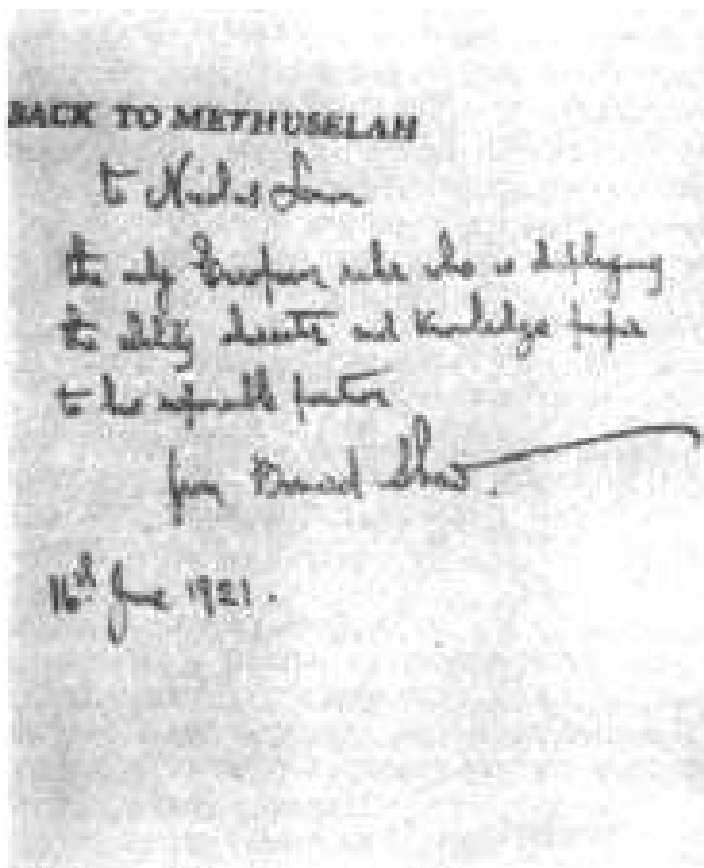 BACK TO METHUSELAH
to Nicolas Lenin
the only European ruler who is displaying
the ability character and knowledge proper
to his responsible position
from Bernard Shaw.
16th June 1921.